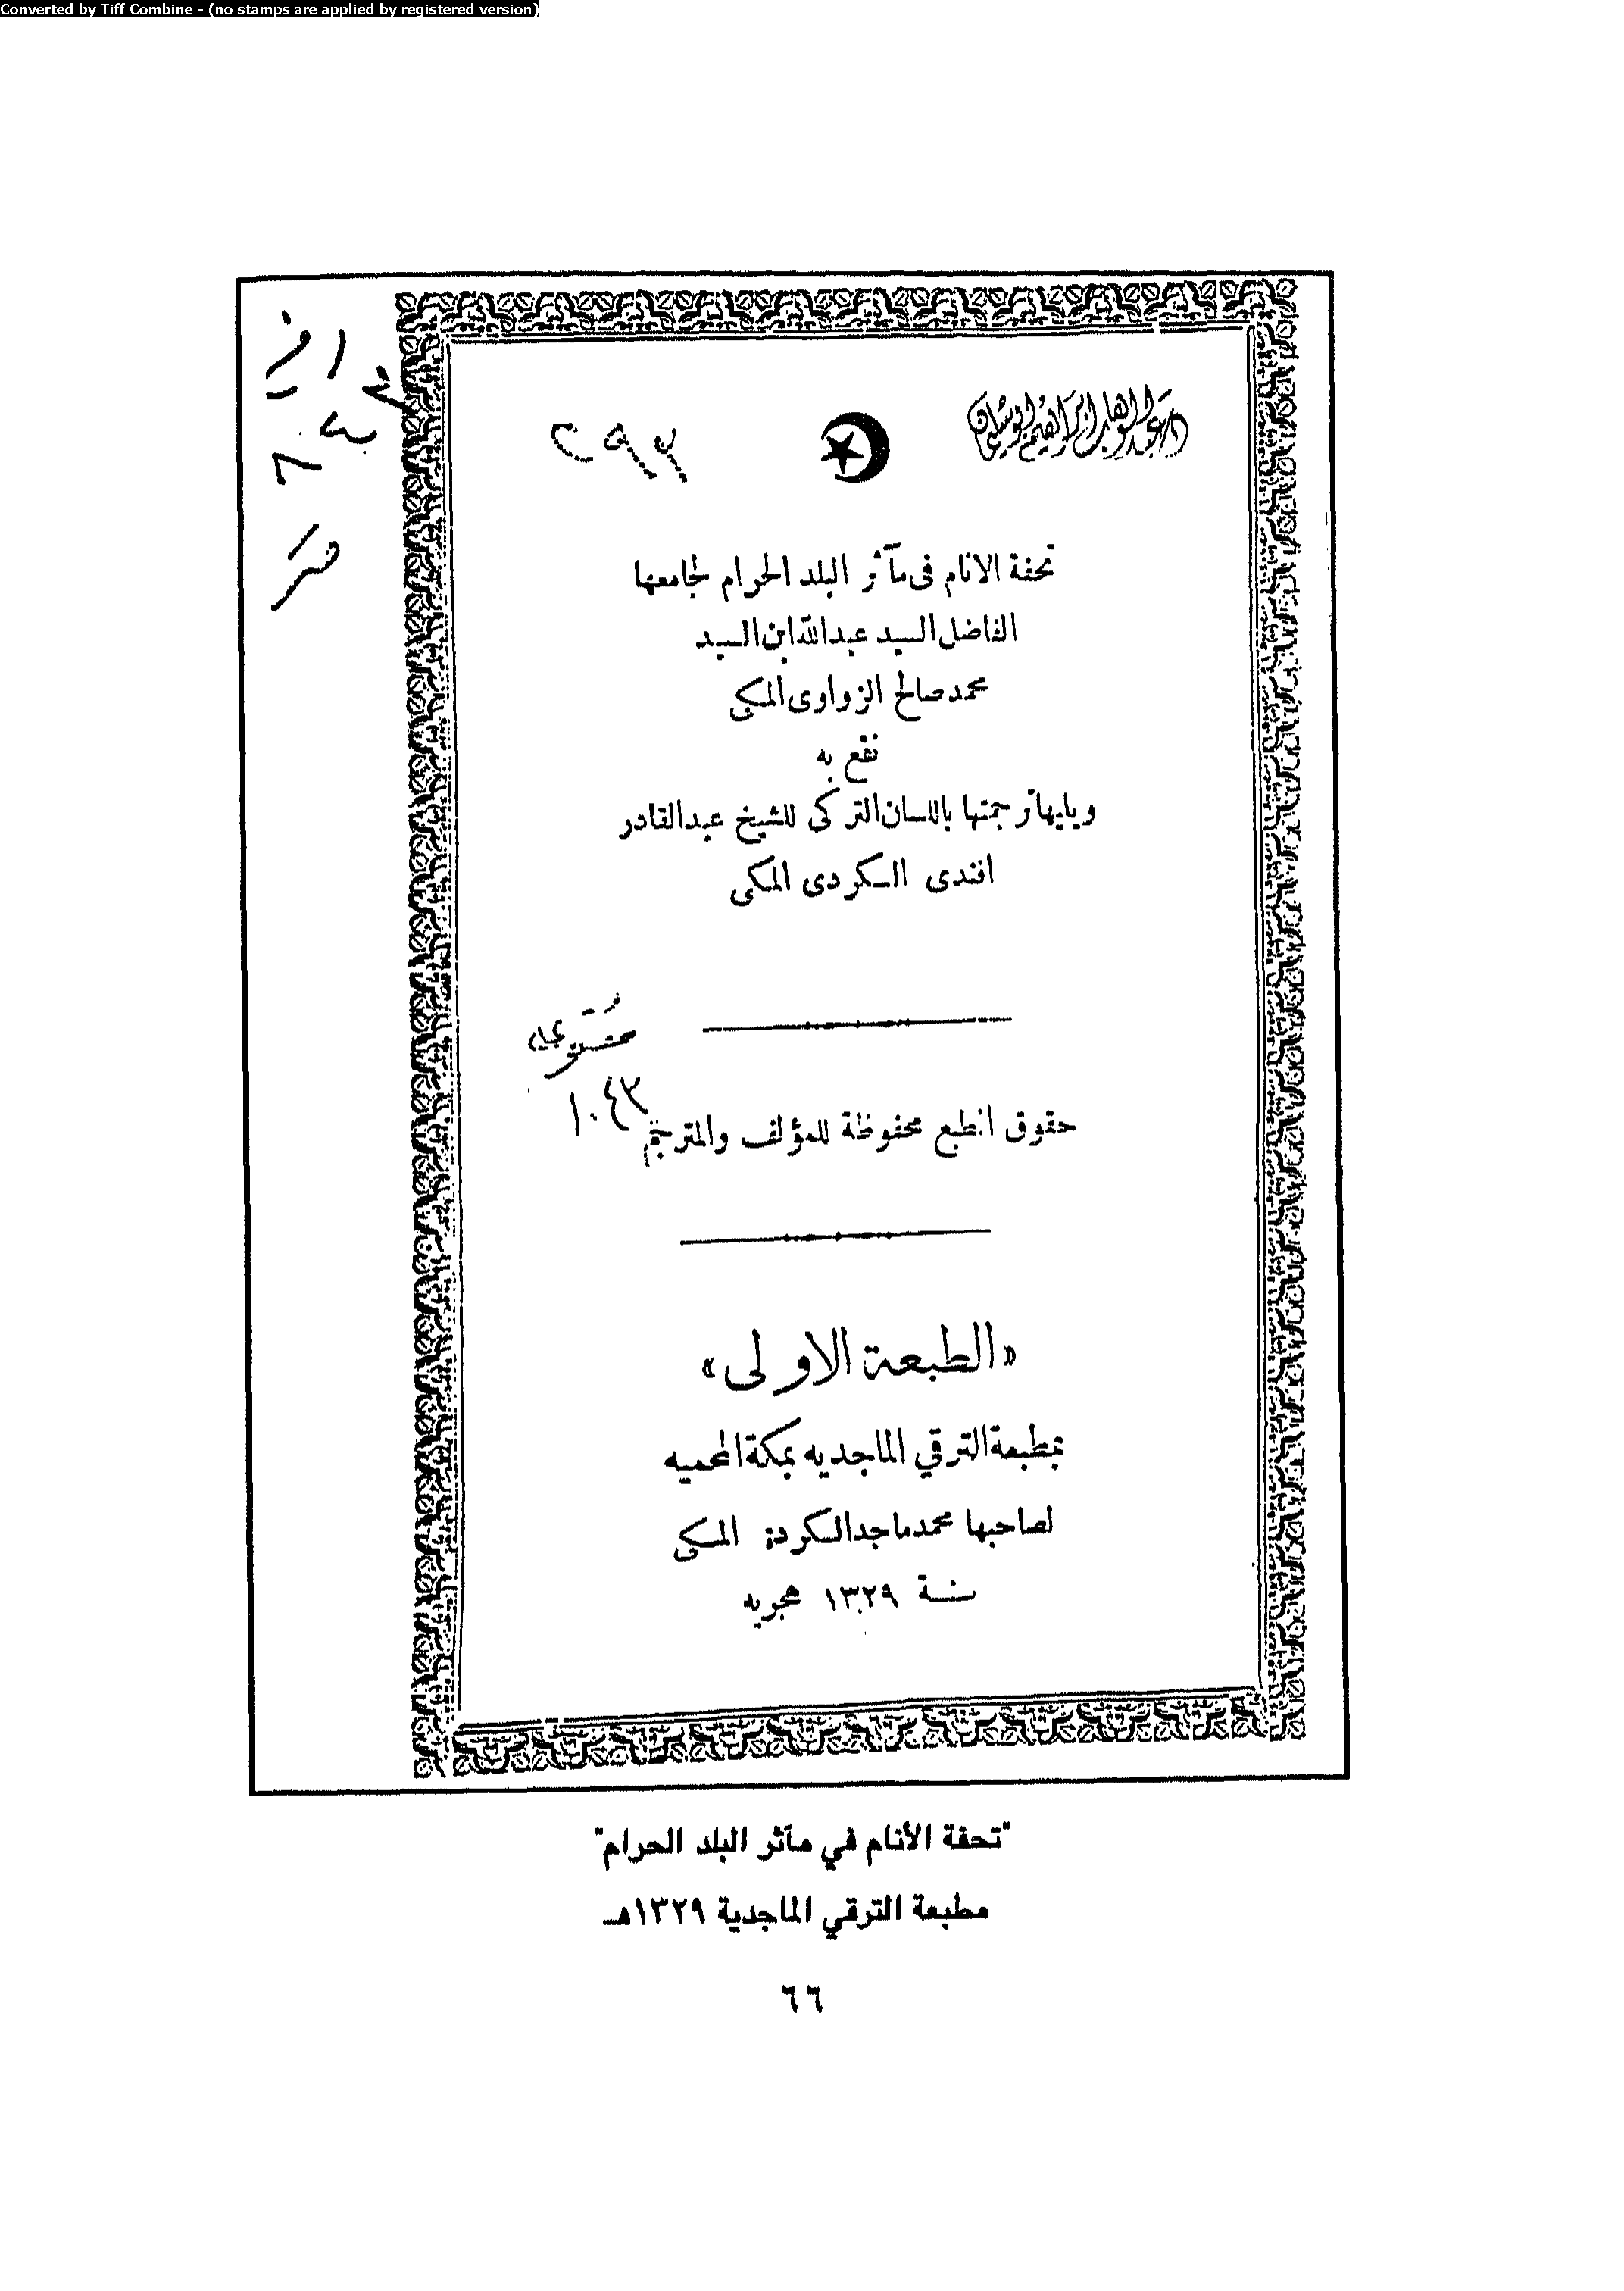 Converted by Tiff Combine - (no stamps are applied by registered version)
د. عبد الوهاب ابراهيم ابو سليمان
تحفة الانام فى مآثر البلد الحرام لجامعها
الفاضل السيد عبدالله ابن السيد
محمد صالح الزواوى المكى
نفع به
ويليها ترجمتها باللسان التركى للشيخ عبدالقادر
افندى الكردى المكى
١٠٤٣
حقوق الطبع محفوظة للمؤلف والمترجم
«الطبعة الاولى»
بمطبعة الترقي الماجديه بمكة المحميه
لصاحبها محمد ماجد الكردى المكى
سنة ١٣٢٩ هجريه
"تحفة الأنام في مآثر البلد الحرام"
مطبعة الترقي الماجدية ١٣٢٩هـ
٦٦